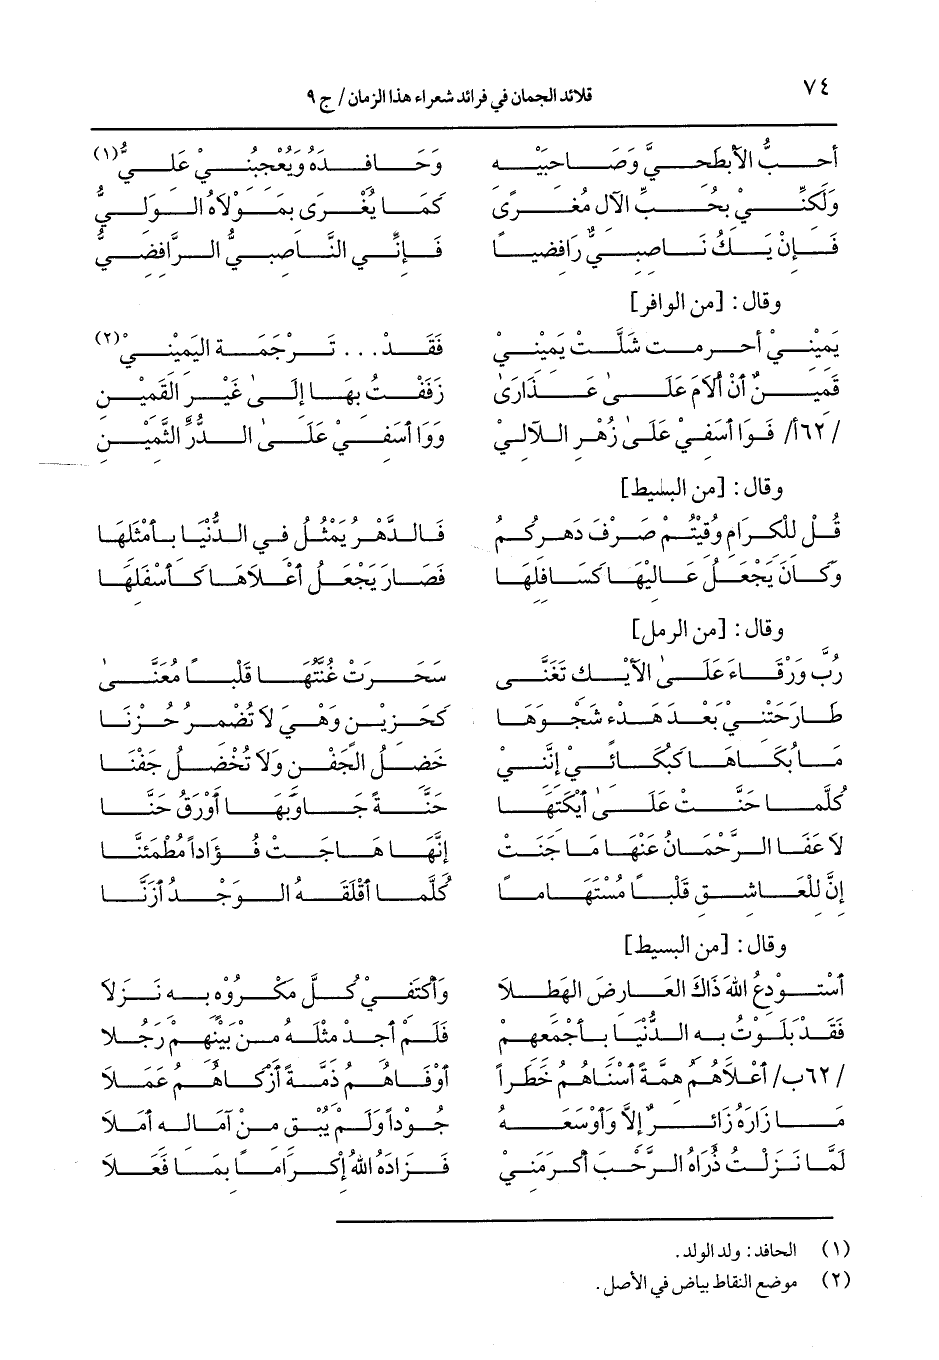 ٧٤
قلائد الجمان في فرائد شعراء هذا الزمان / ج ٩
أحبُّ الأبطحيَّ وَصَاحبَيْه وَحَافدَهُ وَيُعْجبُنيْ عَليُّ(١)
وَلَكنِّيْ بحُبِّ الآل مُغرًى كَمَا يُغْرَى بمَوْلَاهُ الوَليُّ
فَإنْ يَكُ نَاصبيٌّ رَافضيًا فَإنِّي النَّاصبيُّ الرَّافضيُّ
وقال: [من الوافر]
يَمينيْ أحرمت شَلَّت يَمينيْ فَقَدْ... تَرْجَمَة اليَمينيْ(٢)
قَمينٌ أنْ ألَامَ عَلَى عَذَارَى زَفَفْتُ بهَا إلَى غَيْر القَمين
/٦٢أ/ فَوَا أسَفيْ عَلَى زُهْر اللآليْ وَوَا أسَفيْ عَلَى الدُّرِّ الثَّمينْ
وقال: [من البسيط]
قُل للكرَام وُقيْتُم صَرفَ دَهركُم فَالدَّهْرُ يَمْثُلُ في الدُّنْيَا بأمْثَلهَا
وَكَانَ يَجْعَلُ عَاليْهَا كَسَافلهَا فَصَارَ يَجْعَلُ أعْلَاهَا كَأسْفَلهَا
وقال: [من الرمل]
رُبَّ وَرْقَاءَ عَلَى الأَيْك تَغَنَّى سَحَرَتْ غُنَّتُهَا قَلْبًا مُعَنَّى
طَارَحَتْنيْ بَعْدَ هَدْء شَجْوَهَا كَحَزيْن وَهْيَ لَا تُضْمرُ حُزْنَا
مَا بُكَاهَا كَبُكَائيْ إنَّنيْ خَضلُ الجَفْن وَلَا تُخْضلُ جَفْنَا
كُلَّمَا حَنَّتْ عَلَى أيْكَتهَا حَنَّةً جَاوَبَهَا أوْرَقُ حَنَّا
لَا عَفَا الرَّحْمَانُ عَنْهَا مَا جَنَتْ إنَّهَا هَاجَتْ فُؤَاداً مُطْمَئنَّا
إنَّ للعَاشق قَلْبًا مُسْتَهَامًا كُلَّمَا أقْلَقَهُ الوَجْدُ أرَنَّا
وقال: [من البسيط]
أسْتَودعُ اللهَ ذَاكَ العَارضَ الهَطلَا وَأكْتَفيْ كُلَّ مَكْرُوْه به نَزلَا
فَقَدْ بَلَوْتُ به الدُّنْيَا بأجْمَعهمْ فَلَمْ أجدْ مثْلَهُ منْ بَيْنهمْ رَجُلَا
/٦٢ب/ أعْلَاهُمُ همَّةً أسْنَاهُمُ خَطَراً أوْفَاهُمُ ذمَّةً أزْكَاهُمُ عَمَلَا
مَا زَارَهُ زَائرٌ إلَّا وَأوْسَعَهُ جُوْداً وَلَمْ يُبْق منْ آمَاله أمَلَا
لَمَّا نَزَلْتُ ذُرَاهُ الرَّحْبَ أكرَمَنيْ فَزَادَهُ اللهُ إكْرَامًا بمَا فَعَلَا
(١) الحافد: ولد الولد.
(٢) موضع النقاط بياض في الأصل.